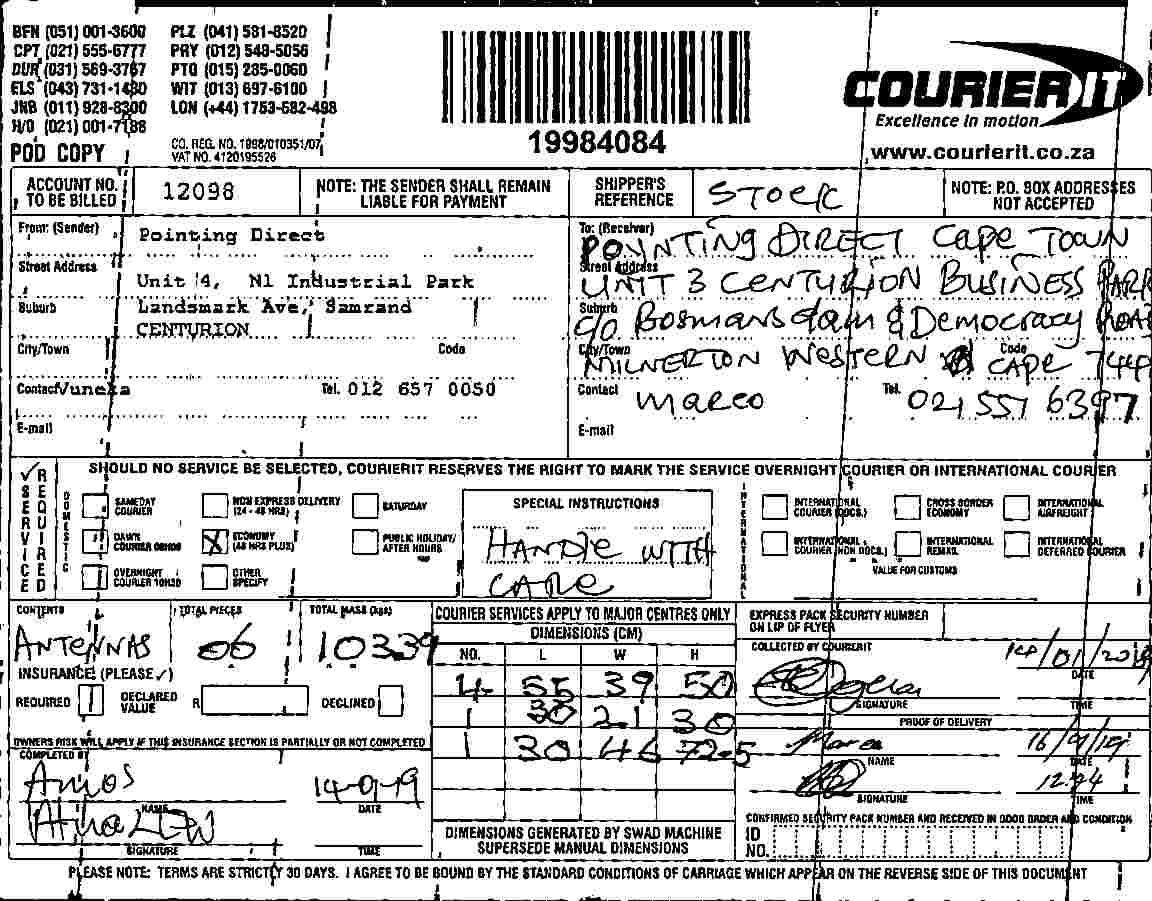 BFN (051) 001-3600 PLZ (041) 581-8520
CPT (021) 555-6777 PRY (012) 548-5056
DUR (031) 569-3767 PTG (015) 285-0060
ELS (043) 731-1480 WIT (013) 697-6100
JNB (011) 928-8300 LON (+44) 1753-682-498
H/O (021) 001-7188
POD COPY
CO. REG. NO. 1998/010351/07
VAT NO. 4120195526
19984084
COURIER IT
Excellence in motion
www.courierit.co.za
ACCOUNT NO. TO BE BILLED 12098
NOTE: THE SENDER SHALL REMAIN LIABLE FOR PAYMENT
SHIPPER'S REFERENCE STOCK
NOTE: P.O. BOX ADDRESSES NOT ACCEPTED
From: (Sender) Pointing Direct
Street Address Unit 4, N1 Industrial Park
Suburb Landsmark Ave, Samrand
CENTURION
City/Town Code
Contact Vuneka Tel. 012 657 0050
E-mail
To: (Receiver) POYNTING DIRECT Cape TOWN
Street Address UNIT 3 CENTURION BUSINESS PARK
Suburb c/o Bosmansdam & Democracy ROAD
City/Town MILNERTON WESTERN CAPE Code 744
Contact Marco Tel. 021 551 6397
E-mail
SERVICE REQUIRED
SHOULD NO SERVICE BE SELECTED, COURIERIT RESERVES THE RIGHT TO MARK THE SERVICE OVERNIGHT COURIER OR INTERNATIONAL COURIER
DOMESTIC
SAMEDAY COURIER
NON EXPRESS DELIVERY (24 - 48 HRS)
SATURDAY
DAWN COURIER 08H00
X ECONOMY (48 HRS PLUS)
PUBLIC HOLIDAY/ AFTER HOURS
OVERNIGHT COURIER 10H30
OTHER SPECIFY
SPECIAL INSTRUCTIONS
HANDLE WITH
CARE
INTERNATIONAL
INTERNATIONAL COURIER (DOCS.)
CROSS BORDER ECONOMY
INTERNATIONAL AIRFREIGHT
INTERNATIONAL COURIER (NON DOCS.)
INTERNATIONAL REMAIL
INTERNATIONAL DEFERRED COURIER
VALUE FOR CUSTOMS
CONTENTS TOTAL PIECES TOTAL MASS (kgs)
ANTENNAS 06 103.39
INSURANCE: (PLEASE ✓)
REQUIRED DECLARED VALUE R DECLINED
OWNERS RISK WILL APPLY IF THIS INSURANCE SECTION IS PARTIALLY OR NOT COMPLETED
COMPLETED BY
Amos 14-01-19
NAME DATE
SIGNATURE TIME
COURIER SERVICES APPLY TO MAJOR CENTRES ONLY
DIMENSIONS (CM)
NO. L W H
4 55 39 50
1 30 21 30
1 30 46 72.5
DIMENSIONS GENERATED BY SWAD MACHINE
SUPERSEDE MANUAL DIMENSIONS
EXPRESS PACK SECURITY NUMBER
ON LIP OF FLYER
COLLECTED BY COURIERIT
14/01/2019
DATE
SIGNATURE TIME
PROOF OF DELIVERY
Marco
NAME DATE
SIGNATURE TIME
CONFIRMED SECURITY PACK NUMBER AND RECEIVED IN GOOD ORDER AND CONDITION
ID NO.
PLEASE NOTE: TERMS ARE STRICTLY 30 DAYS. I AGREE TO BE BOUND BY THE STANDARD CONDITIONS OF CARRIAGE WHICH APPEAR ON THE REVERSE SIDE OF THIS DOCUMENT